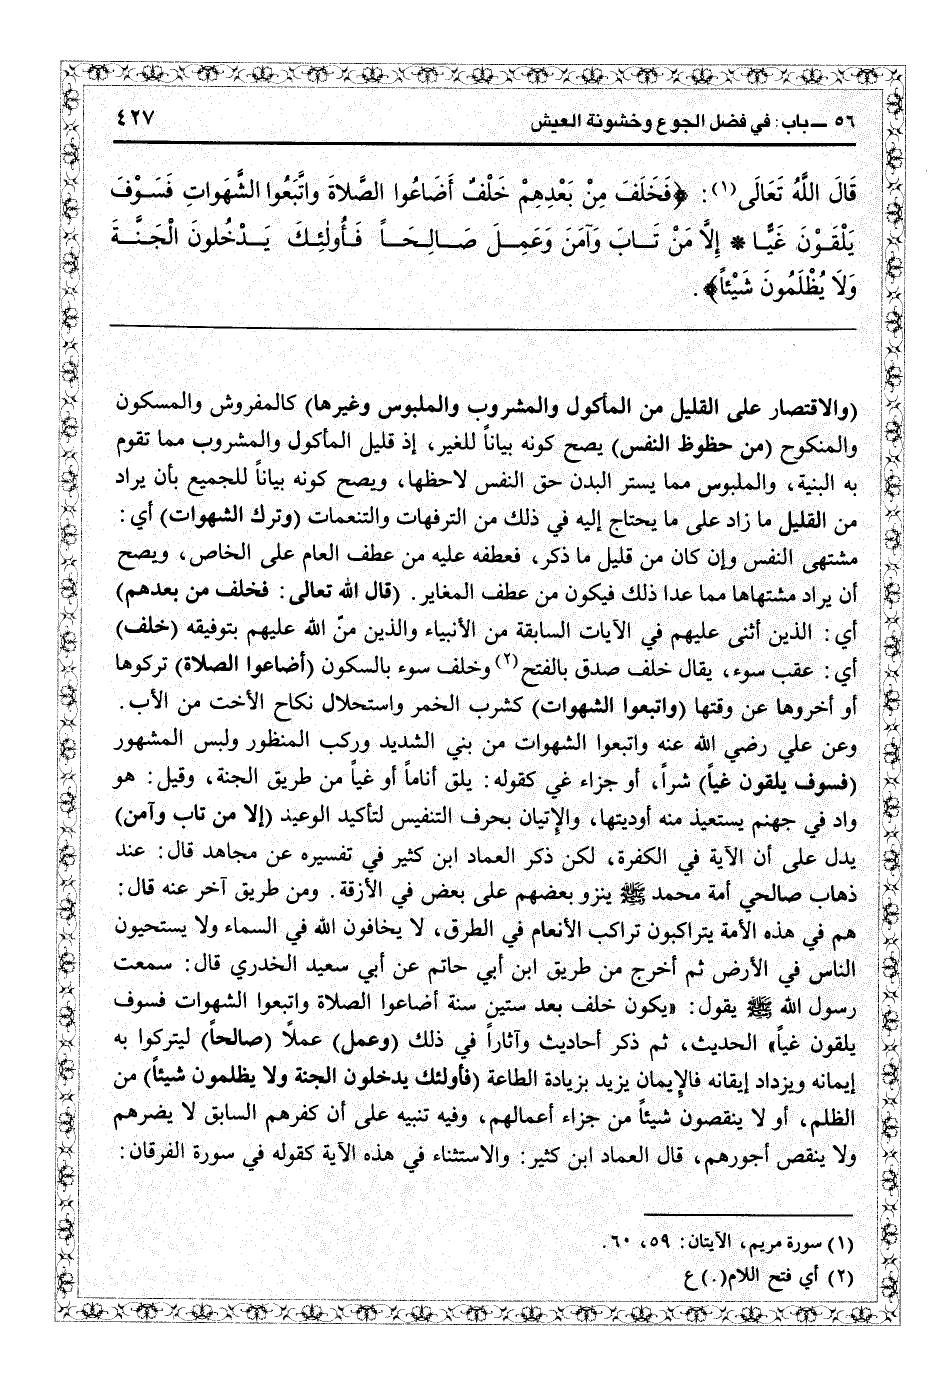 ٥٦ ـ باب: في فضل الجوع وخشونة العيش ٤٢٧
قَالَ اللَّهُ تَعَالَى(١): ﴿فَخَلَفَ مِنْ بَعْدِهِمْ خَلْفٌ أَضَاعُوا الصَّلاةَ واتَّبَعُوا الشَّهَواتِ فَسَوْفَ
يَلْقَوْنَ غَيًّا * إِلَّا مَنْ تَابَ وَآمَنَ وَعَمِلَ صَالِحَاً فَأُولَئِكَ يَدْخُلونَ الْجَنَّةَ
وَلَا يُظْلَمُونَ شَيْئاً﴾.
(والاقتصار على القليل من المأكول والمشروب والملبوس وغيرها) كالمفروش والمسكون
والمنكوح (من حظوظ النفس) يصح كونه بياناً للغير، إذ قليل المأكول والمشروب مما تقوم
به البنية، والملبوس مما يستر البدن حق النفس لاحظها، ويصح كونه بياناً للجميع بأن يراد
من القليل ما زاد على ما يحتاج إليه في ذلك من الترفهات والتنعمات (وترك الشهوات) أي:
مشتهى النفس وإن كان من قليل ما ذكر، فعطفه عليه من عطف العام على الخاص، ويصح
أن يراد مشتهاها مما عدا ذلك فيكون من عطف المغاير. (قال الله تعالى: فخلف من بعدهم)
أي: الذين أثنى عليهم في الآيات السابقة من الأنبياء والذين منّ الله عليهم بتوفيقه (خلف)
أي: عقب سوء، يقال خلف صدق بالفتح(٢) وخلف سوء بالسكون (أضاعوا الصلاة) تركوها
أو أخروها عن وقتها (واتبعوا الشهوات) كشرب الخمر واستحلال نكاح الأخت من الأب.
وعن علي رضي الله عنه واتبعوا الشهوات من بني الشديد وركب المنظور ولبس المشهور
(فسوف يلقون غياً) شراً، أو جزاء غي كقوله: يلق أثاماً أو غياً من طريق الجنة، وقيل: هو
واد في جهنم يستعيذ منه أوديتها، والإتيان بحرف التنفيس لتأكيد الوعيد (إلا من تاب وآمن)
يدل على أن الآية في الكفرة، لكن ذكر العماد ابن كثير في تفسيره عن مجاهد قال: عند
ذهاب صالحي أمة محمد ﷺ ينزو بعضهم على بعض في الأزقة. ومن طريق آخر عنه قال:
هم في هذه الأمة يتراكبون تراكب الأنعام في الطرق، لا يخافون الله في السماء ولا يستحيون
الناس في الأرض ثم أخرج من طريق ابن أبي حاتم عن أبي سعيد الخدري قال: سمعت
رسول الله ﷺ يقول: «يكون خلف بعد ستين سنة أضاعوا الصلاة واتبعوا الشهوات فسوف
يلقون غياً» الحديث، ثم ذكر أحاديث وآثاراً في ذلك (وعمل) عملًا (صالحاً) ليتركوا به
إيمانه ويزداد إيقانه فالإيمان يزيد بزيادة الطاعة (فأولئك يدخلون الجنة ولا يظلمون شيئاً) من
الظلم، أو لا ينقصون شيئاً من جزاء أعمالهم، وفيه تنبيه على أن كفرهم السابق لا يضرهم
ولا ينقص أجورهم، قال العماد ابن كثير: والاستثناء في هذه الآية كقوله في سورة الفرقان:
(١) سورة مريم، الآيتان: ٥٩، ٦٠.
(٢) أي فتح اللام(.) ع